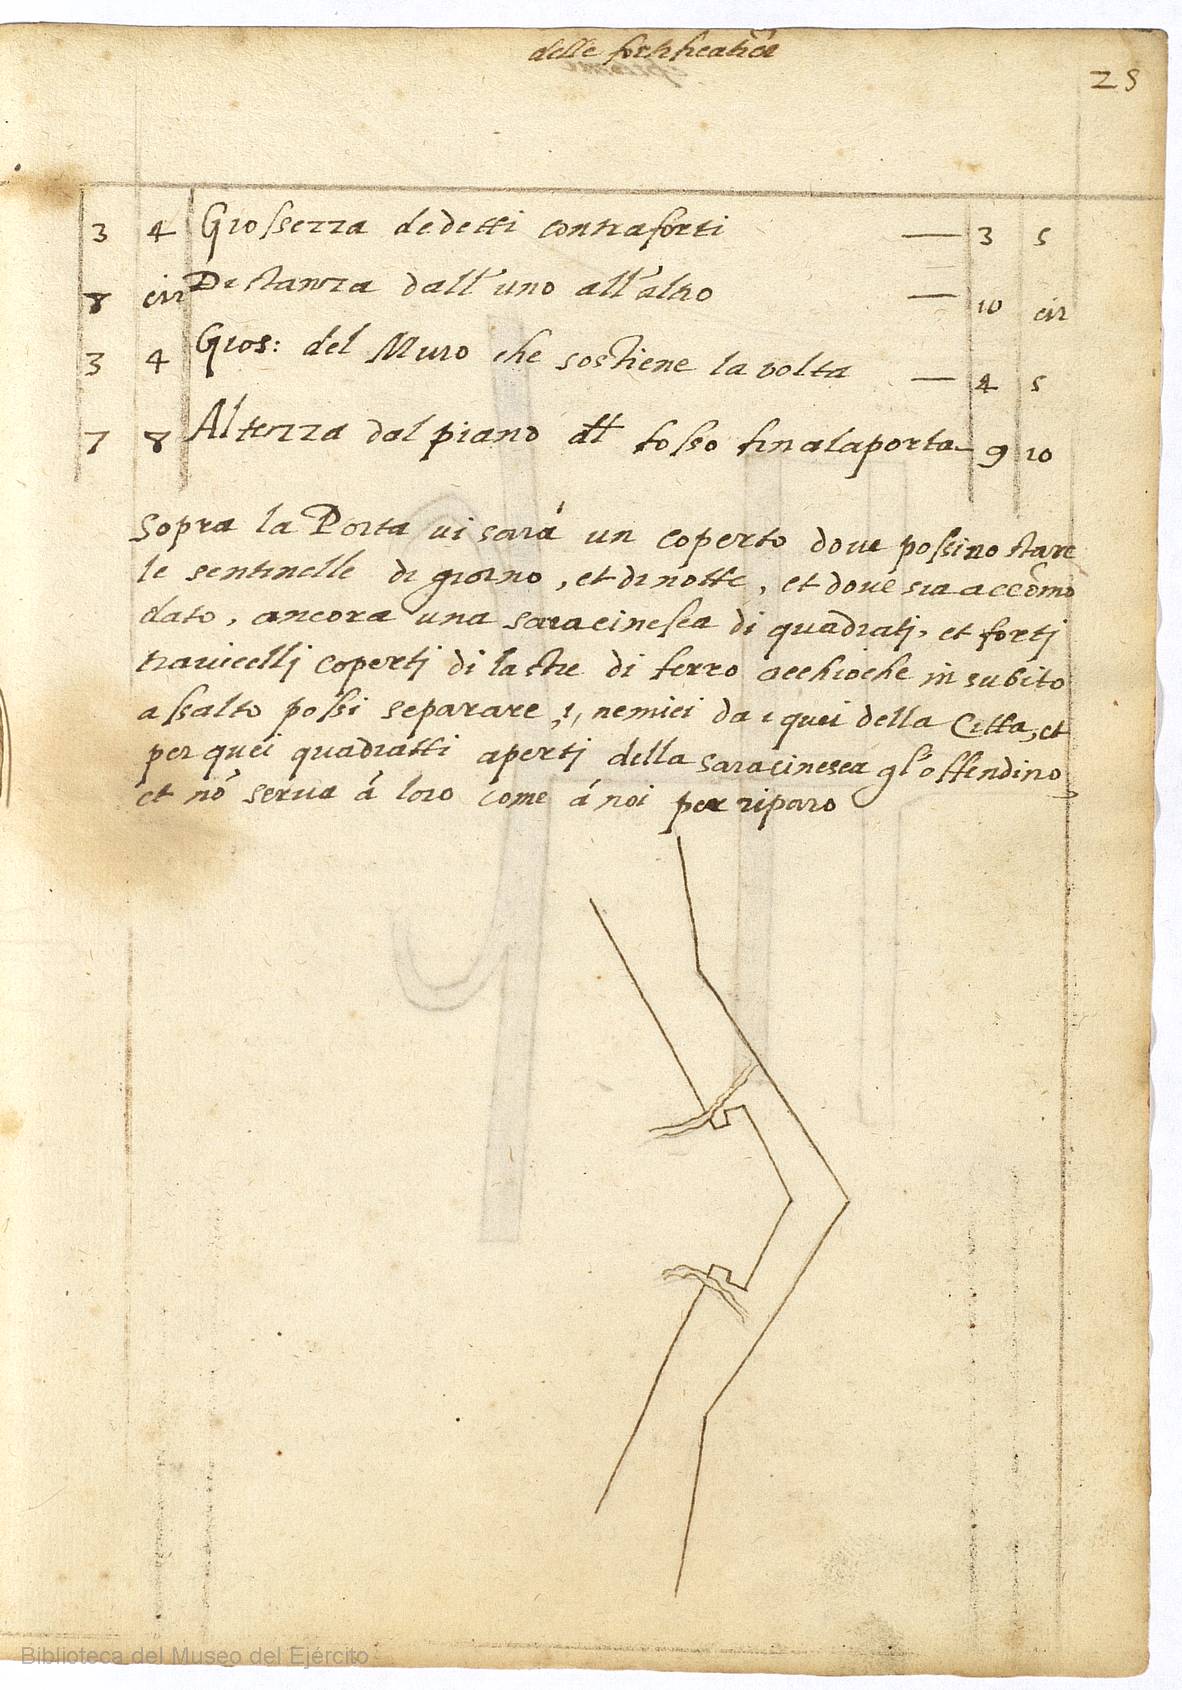 delle fortificatiōi
25
3 4 Grossezza dedetti contraforti — 3 5
8 cir Distanza dall'uno all'altro — 10 cir
3 4 Gros: del Muro che sostiene la volta — 4 5
7 8 Altezza dal piano dll fosso finalaporta — 9 10
Sopra la Porta ui sará un coperto doue possino stare
le sentinelle di giorno, et di notte, et doue sia accōmo
dato, ancora una saracinesca di quadratj, et fortj
trauicellj copertj di lastre di ferro acchioche in subito
assalto possi separare, i, nemici da i quei della Citta, et
per quei quadratti apertj della saracinesca gl'offendino
et nō serua á loro come á noi per riparo
Biblioteca del Museo del Ejército